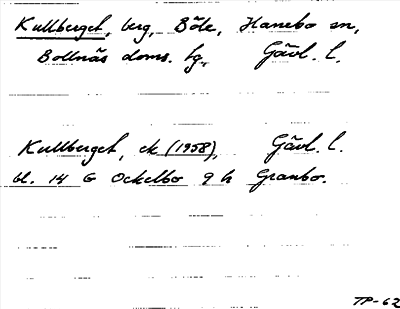 Kullberget, berg, Böle, Hanebo sn,
Bollnäs doms. tg, Gävl. l.
Kullberget, ek (1958), Gävl. l.
bl. 14 G Ockelbo 9 h Granbo.
TP-62